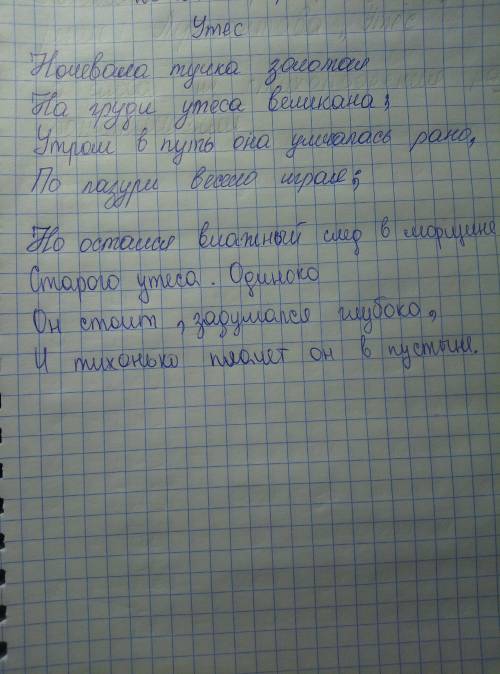 Утес
Ночевала тучка золотая
На груди утеса великана;
Утром в путь она умчалась рано,
По лазури весело играя;
Но остался влажный след в морщине
Старого утеса. Одиноко
Он стоит, задумался глубоко,
И тихонько плачет он в пустыне.